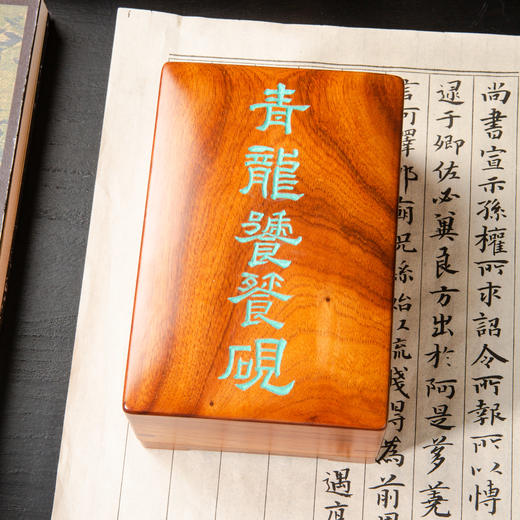 青龍饕餮硯
尚書宣示孫權所求詔令所報所以博
逮于卿佐必冀良方出於阿是芻蕘
言可擇郎廟況繇始以疏賤得為前恩
遇